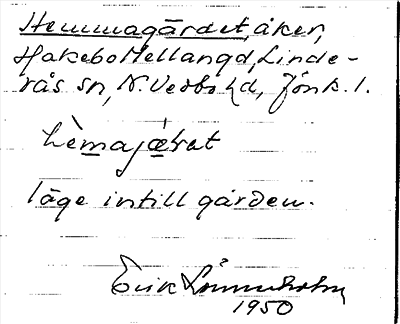 Hemmagärdet, åker,
Hakebo Mellangd, Linde-
rås sn, N. Vedbo hd, Jönk. l.
hèmajæ̀rat
läge intill gården.
Erik
1950